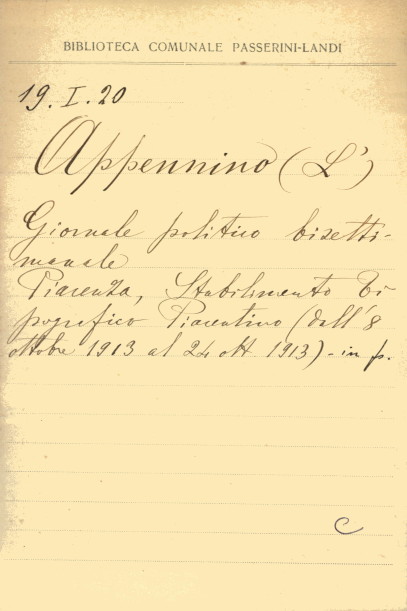 BIBLIOTECA COMUNALE PASSERINI-LANDI
19. I. 20
Appennino (L')
Giornale politico bisetti-
manale
Piacenza, Stabilimento Ti-
pografico Piacentino (dall'8
ottobre 1913 al 24 ott 1913) - in f.
C